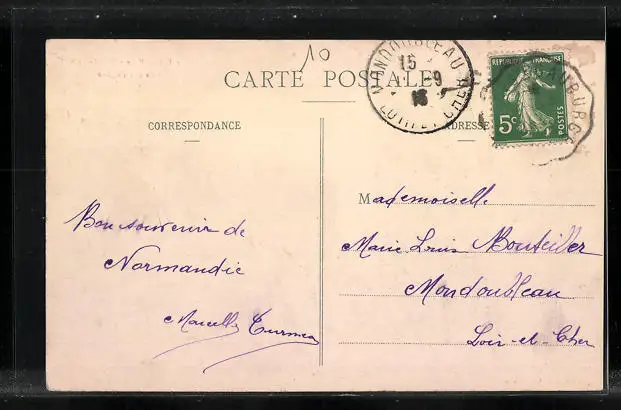 10
CARTE POSTALE
MONDOUBLEAU
LOIR-ET-CHER
15
9
REPUBLIQUE FRANÇAISE
5c
POSTES
CORRESPONDANCE
ADRESSE
Mademoiselle
Marie Louis Bouteiller
Mondoubleau
Loir-et-Cher
Bon souvenir de
Normandie